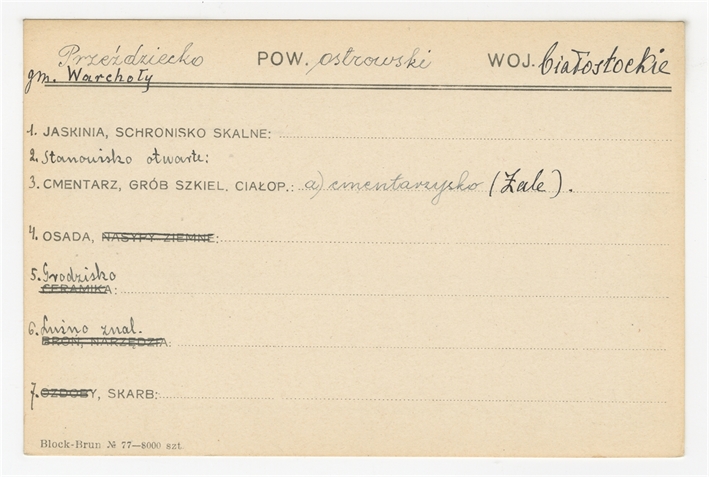 Przeździecko POW. ostrowski WOJ. białostockie
gm. Warchoły
1. JASKINIA, SCHRONISKO SKALNE:
2. Stanowisko otwarte:
3. CMENTARZ, GRÓB SZKIEL, CIAŁOP.: a) cmentarzysko (Żale).
4. OSADA, NASYPY ZIEMNE:
5. Grodzisko
CERAMIKA:
6. Luźno znal.
BROŃ, NARZĘDZIA:
7. OZDOBY, SKARB:
Block-Brun № 77—8000 szt.